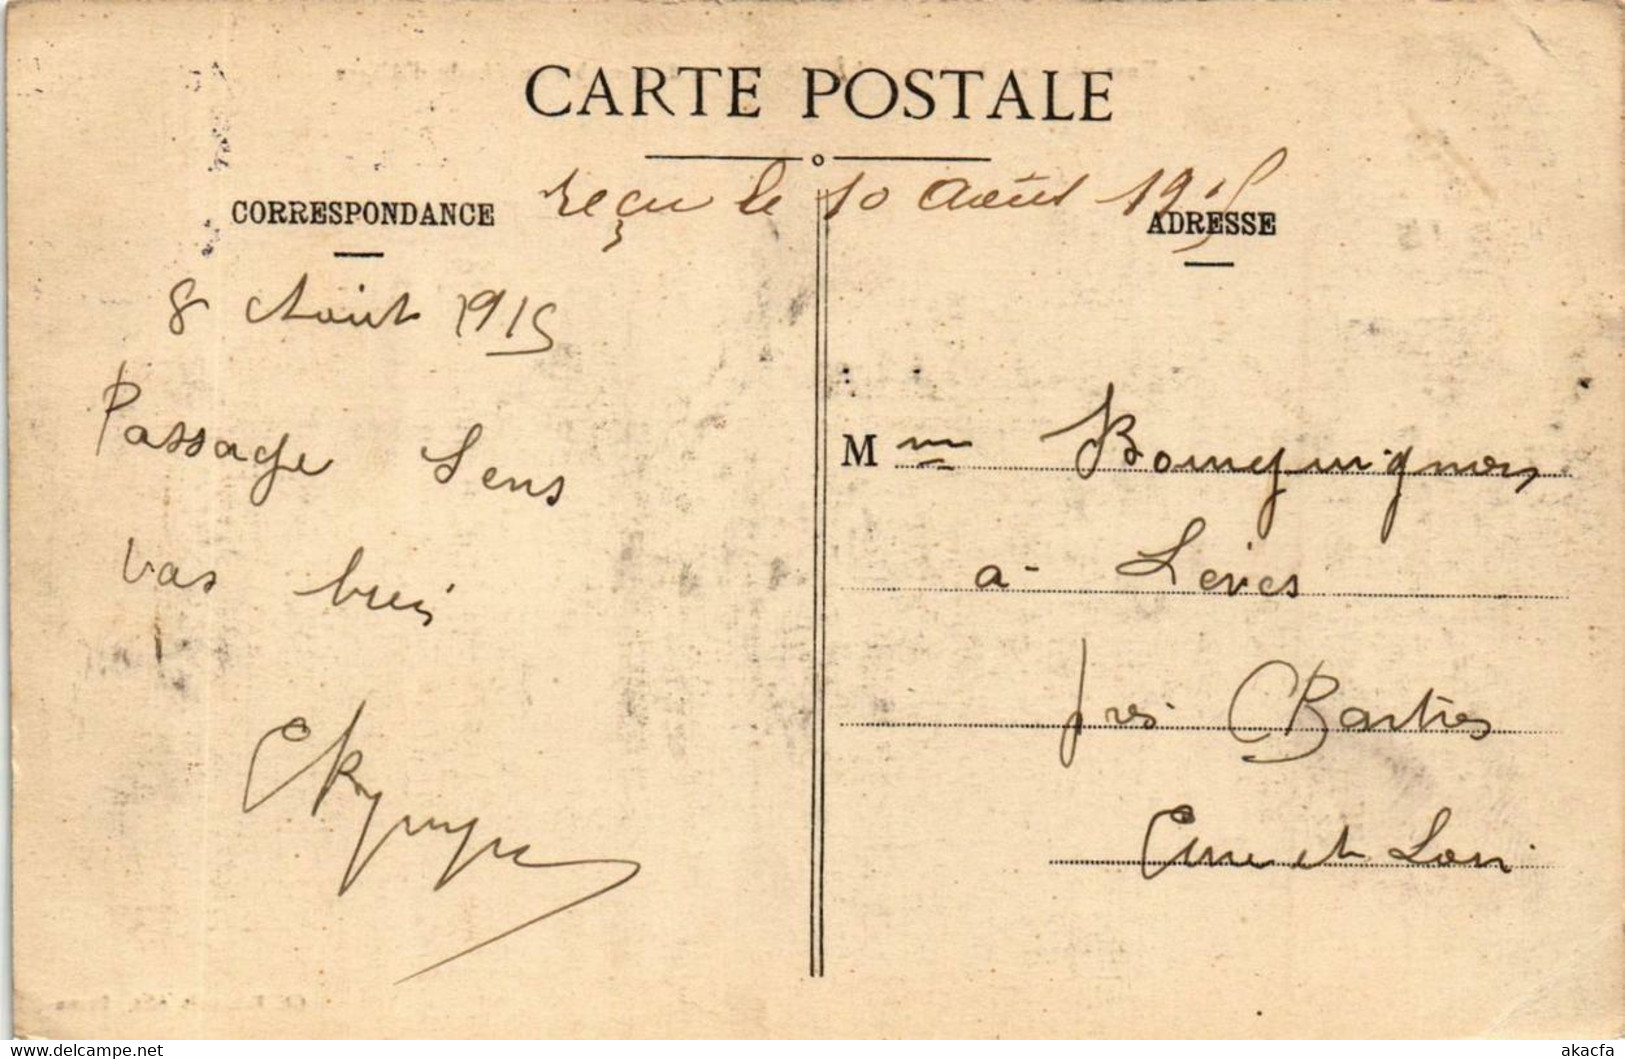 CARTE POSTALE
CORRESPONDANCE
reçu le 10 Août 1915
ADRESSE
8 Août 1915
Passage Sens
vas bien
Mme Bourguignon
à Lèves
près Chartres
Eure et Loir
delcampe.net
akacfa